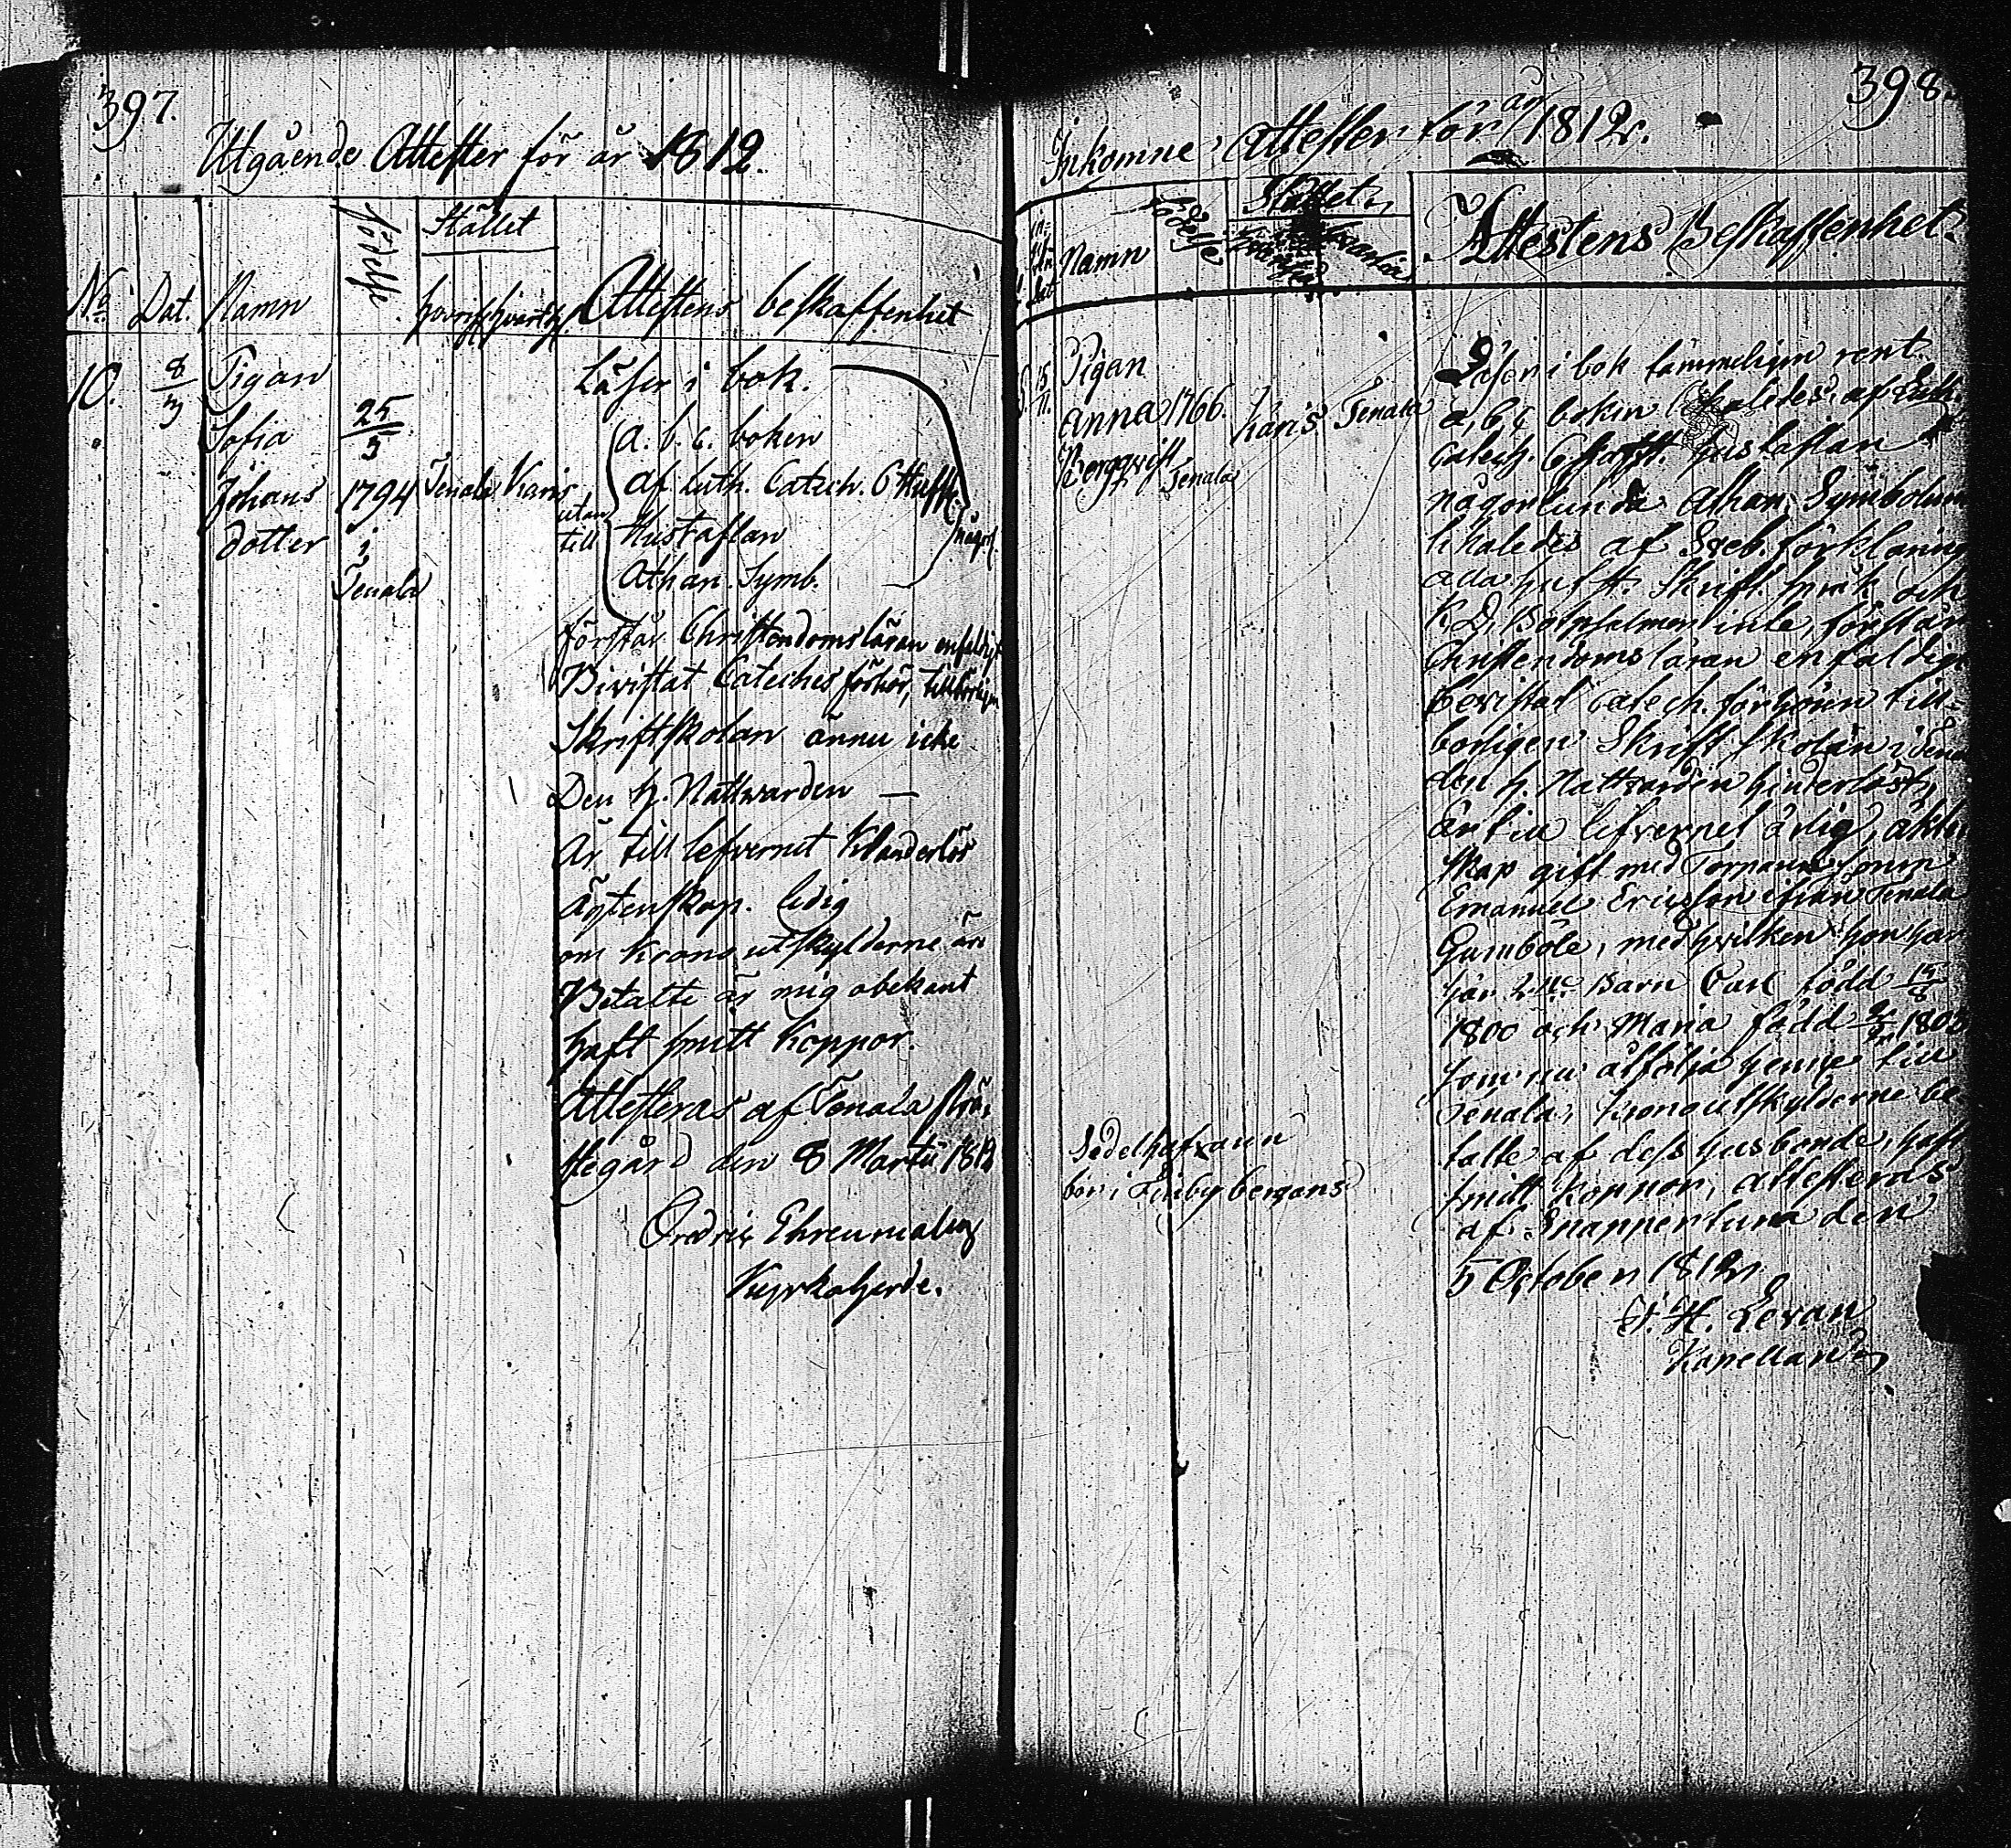 397.
Utgående Attester för år 1812.
Födelse
Stället
No Dat. Namn hvarifr. hvart Attestens beskaffenhet
10. 8/3 Pigan
Sofia
Johans
dotter
25/3
1794
i
Tenala
Tenala Karis
Läser i bok.
utan till
a. b. c. boken
af Luth. Catech. 6 Hufst.
Hustaflan
Athan. Symb.
någorl.
förstår Christendomsläran enfaldigt
Bivistat Cateches förhör, tillbörligen
Skriftskolan ännu icke
Den h. Nattwarden —
Är till lefvernet klanderlös
Ägtenskap. ledig
om Krono utskylderne är
Betalte är mig obekant
haft smitt koppor.
Attesteras af Tenala Prä-
stegård den 8 Martii 1812
Fredric Ehrenmalm
Kyrkoherde.
398.
Inkomne Attester för år 1812.
Namn
Födelse
Stället
Attestens Beskaffenhet.
15/11.
Pigan
Anna
Bergqvist
1766.
Tenala
Karis Tenala
Läser i bok tämmeligen rent
a, b, c boken likaledes, af Luth.
Catech. 6 hufst. hustaflan
någorlunda Athan. Symbolum
likaledes af Sveb. förklaring
alla hufst. Skrift. språk och
K. D. Botpsalmer inte, förstår
Christendoms läran enfaldigt
bevistat catech. förhören till-
börligen Skrift skolan i Tenala
den h. Nattvarden hinderlöst,
är till lefvernet ärlig, äkten
skap gift med Torpare sonen
Emanuel Ericsson ifrån Tenala
Gumböle, med hvilken hon har
här 2ne Barn Carl född 15/8
1800 och Maria född 1803
som nu åtfölja henne till
Tenala, Kronoutskylderne be-
talte af dess husbonde, haft
smitt koppor, attesteras
af Snappertuna den
5 October 1812
J. H. Levan
Kapellan
Sedelhafvarin
bor i Finby bergans